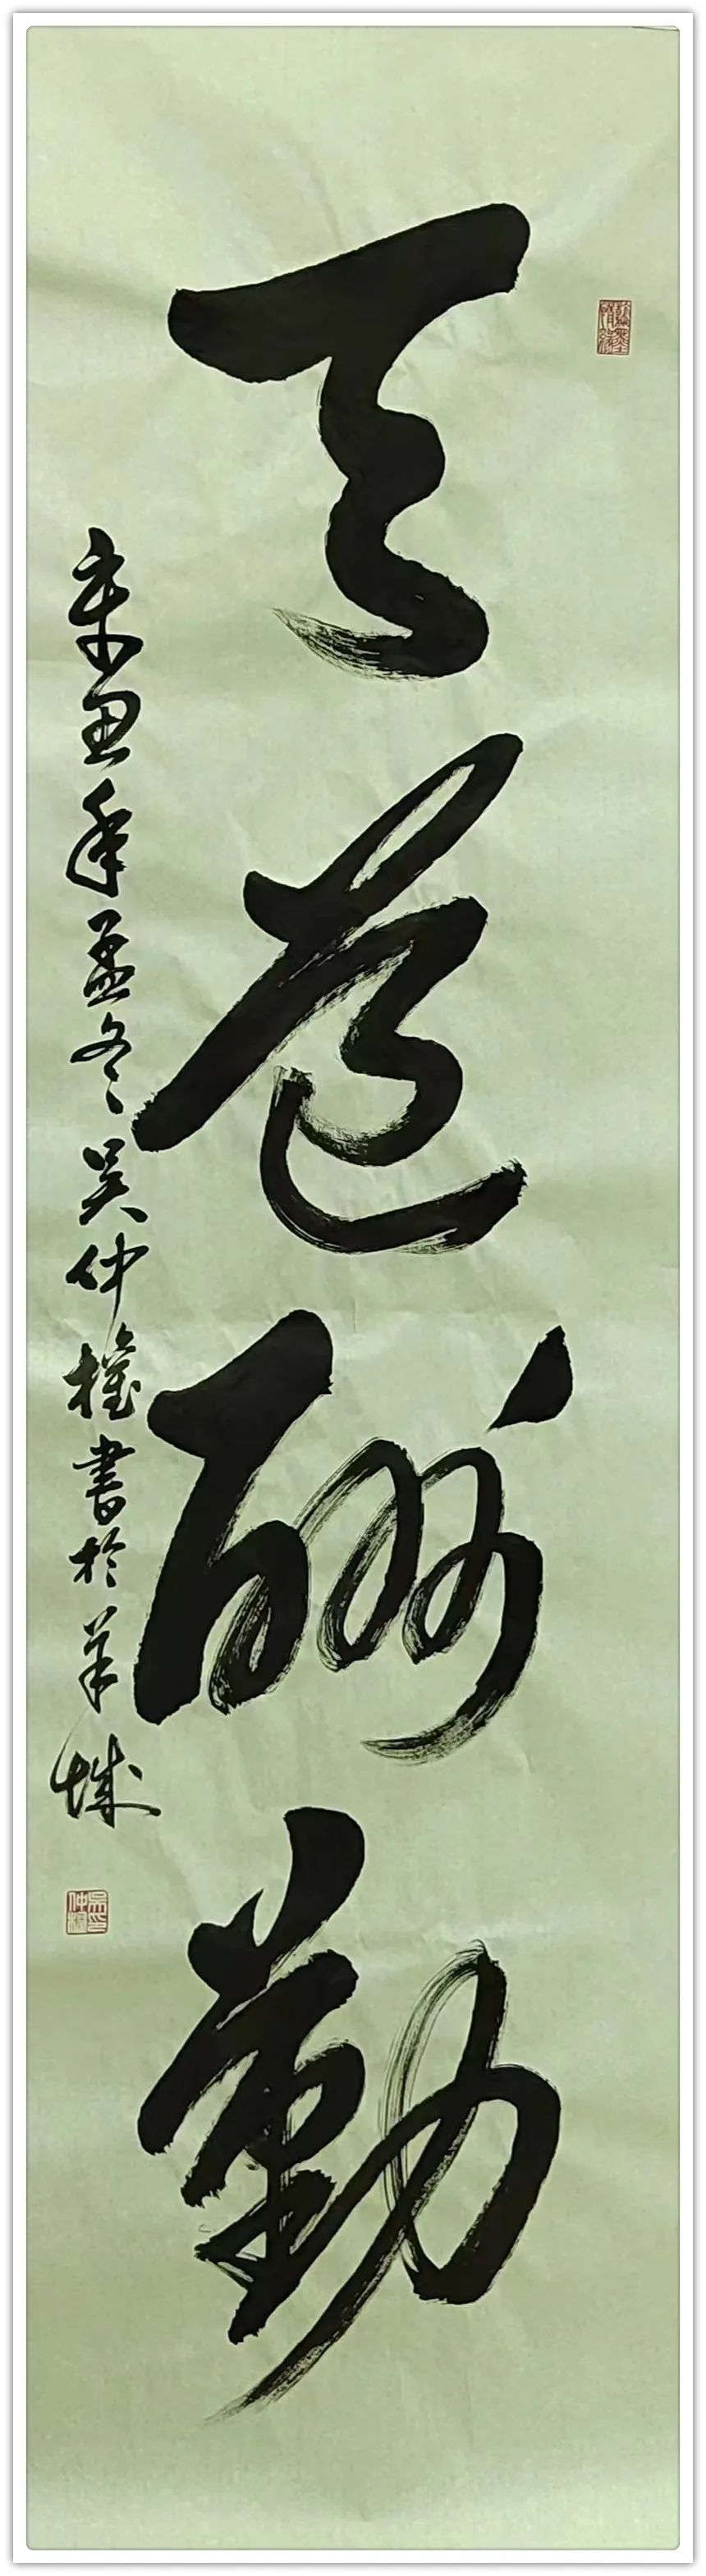 天道酬勤
辛丑年孟冬吴仲權書於羊城